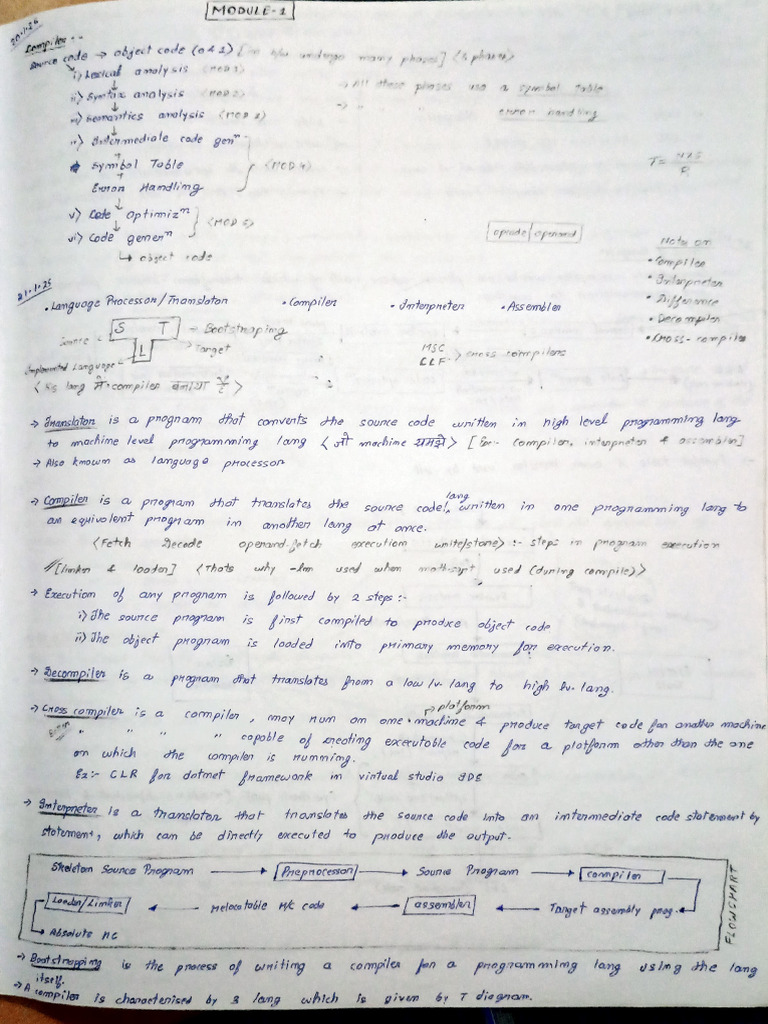 MODULE-1
20.1.26
Compiler --
Source code → object code (0 & 1) [in b/w undergo many phases] <3 phases>
i) Lexical analysis <MOD 1>
→ All these phases use a symbol table
ii) Syntax analysis <MOD 2>
→ " " error handling
iii) Semantics analysis <MOD 3>
iv) Intermediate code genⁿ
Symbol Table <MOD 4>
Error Handling
T = 
v) Code Optimizⁿ <MOD 5>
vi) Code generⁿ
opcode | operand
↳ object code
Note on
• Compiler
• Interpreter
• Difference
• Decompiler
• Cross-compiler
21.1.25
• Language Processor/Translator • Compiler • Interpreter • Assembler
S T → Bootstraping
Source
Target
L
Implemented Language
MSC
CLF > cross compilers
<Kis lang में compiler बनाया >
→ Translator is a program that converts the source code written in high level programming lang
to machine level programming lang <जो machine समझे> [Ex:- compiler, interpreter & assembler]
→ Also known as language processor
→ Compiler is a program that translates the source code lang written in one programming lang to
an equivalent program in another lang at once.
<Fetch Decode operand-fetch execution write/store> :- steps in program execution
[linker & loader] <Thats why -lm used when math-sqrt used (during compile)>
→ Execution of any program is followed by 2 steps:-
i) The source program is first compiled to produce object code
ii) The object program is loaded into primary memory for execution.
→ Decompiler is a program that translates from a low lv. lang to high lv. lang.
→ Cross compiler is a compiler, may run on one machine & produce target code for another machine
→ platform
" " " capable of creating executable code for a platform other than the one
on which the compiler is running.
Ex:- CLR for dotnet framework in virtual studio IDE
→ Interpreter is a translator that translates the source code into an intermediate code statement by
statement, which can be directly executed to produce the output.
Skeleton Source Program → Preprocessor → Source Program → compiler
Loader/Linker ← Relocatable M/C code ← assembler ← Target assembly prog.
→ Absolute MC
FLOWCHART
→ Bootstrapping is the process of writing a compiler for a programming lang using the lang
itself.
→ A compiler is characterised by 3 lang which is given by T diagram.